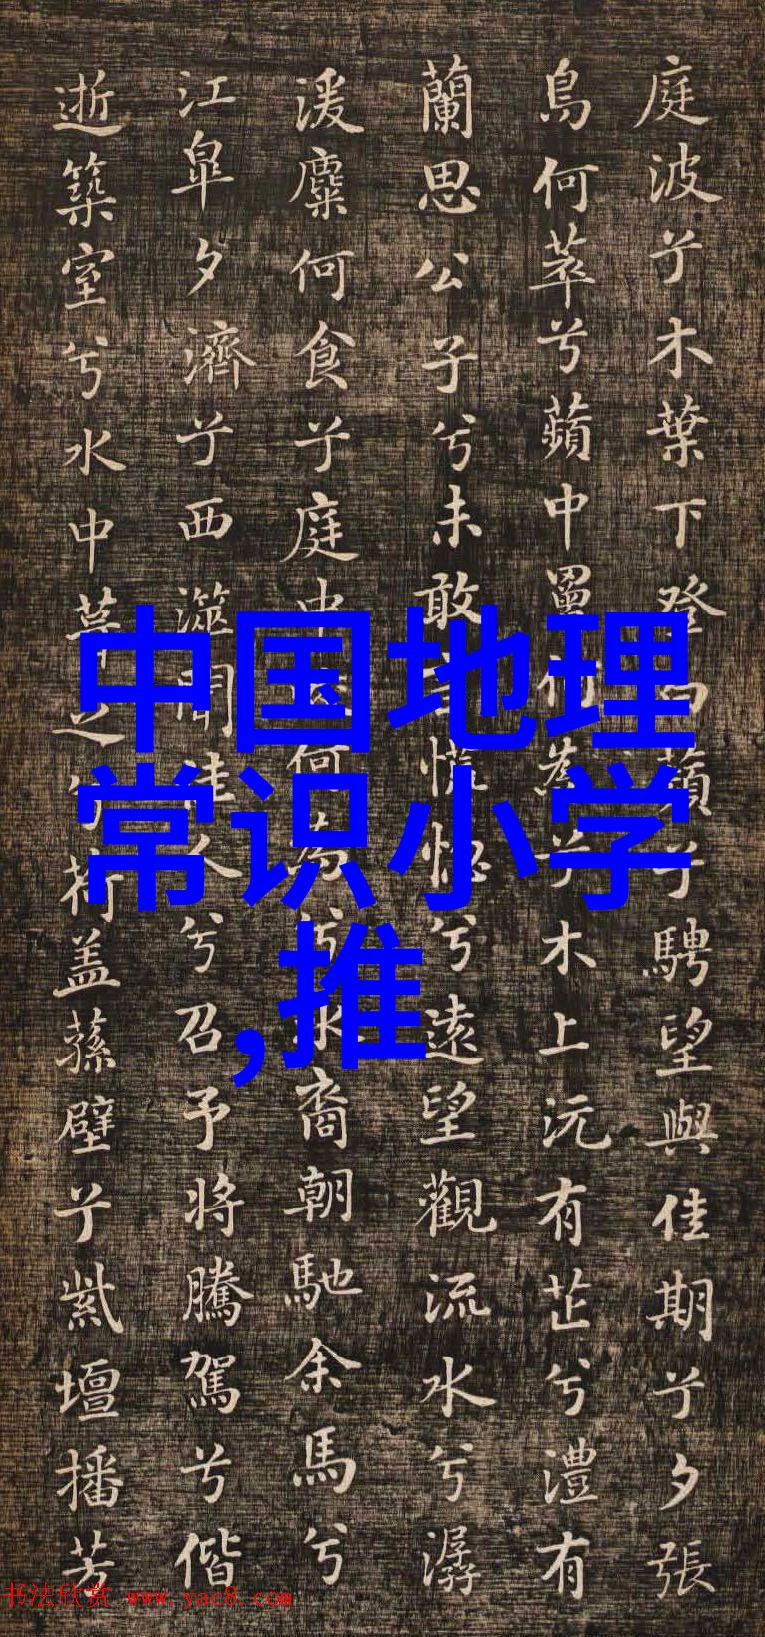 庭波兮木葉下登白蘋兮騁望與佳期兮夕張
鳥何萃兮蘋中罾何為兮木上沅有芷兮澧有
蘭思公子兮未敢言慌惚兮遠望觀流水兮潺
湲麋何食兮庭中蛟何為兮水裔朝馳余馬兮
江皋夕濟兮西澨聞佳人兮召予將騰駕兮偕
逝築室兮水中葺之以荷蓋蓀壁兮紫壇播芳
中国地理
常识小学
,推
书法欣赏 www.yac8.com